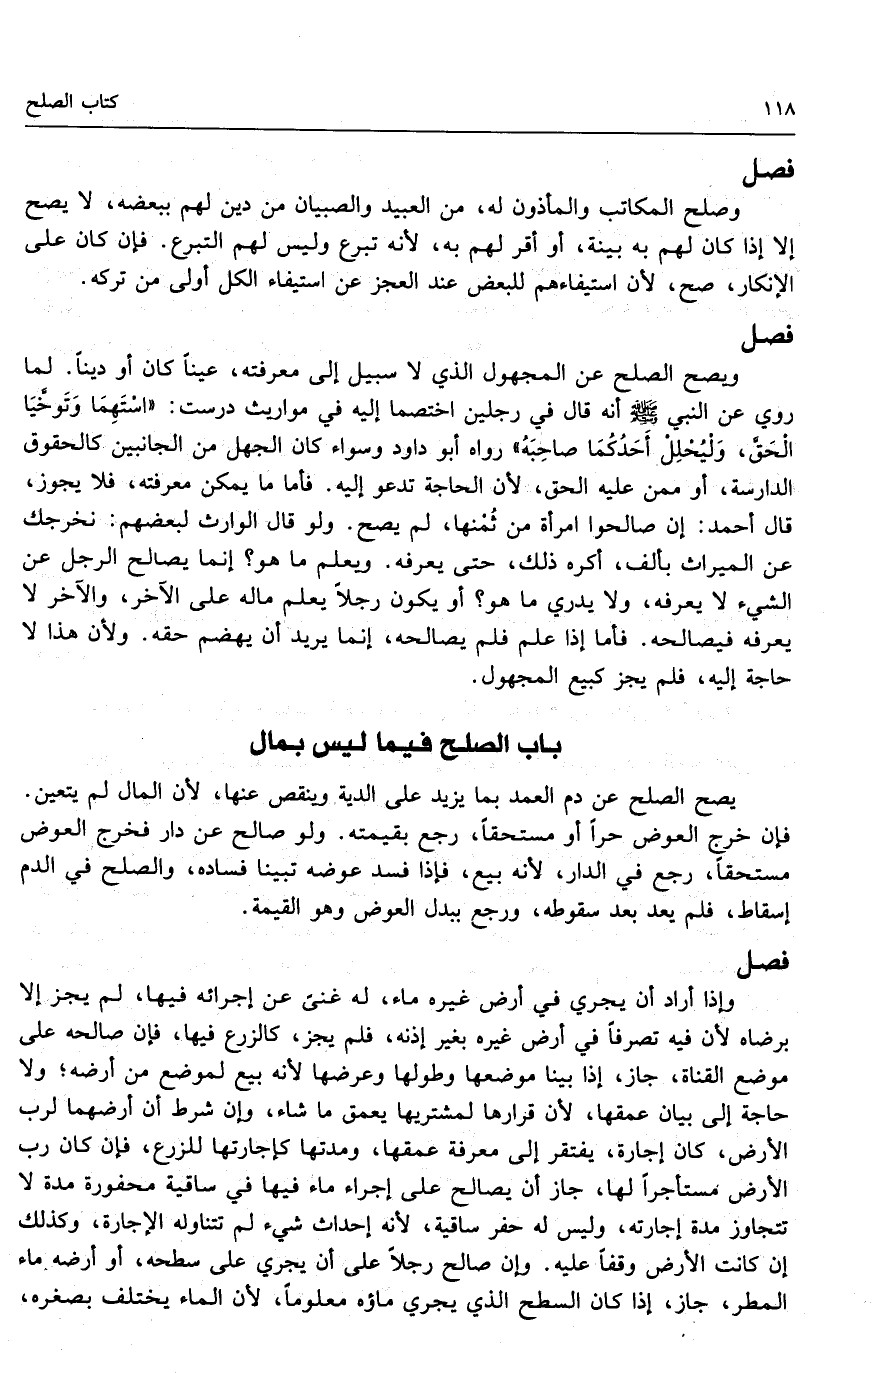 ١١٨
كتاب الصلح
فصل
وصلح المكاتب والمأذون له، من العبيد والصبيان من دين لهم ببعضه، لا يصح
إلا إذا كان لهم به بينة، أو أقر لهم به، لأنه تبرع وليس لهم التبرع. فإن كان على
الإنكار، صح، لأن استيفاءهم للبعض عند العجز عن استيفاء الكل أولى من تركه.
فصل
ويصح الصلح عن المجهول الذي لا سبيل إلى معرفته، عيناً كان أو ديناً. لما
روي عن النبي ﷺ أنه قال في رجلين اختصما إليه في مواريث درست: «اسْتَهِمَا وَتَوخَّيَا
الْحَقَّ، وَلْيُحْلِلْ أَحَدُكُمَا صاحِبَهُ» رواه أبو داود وسواء كان الجهل من الجانبين كالحقوق
الدارسة، أو ممن عليه الحق، لأن الحاجة تدعو إليه. فأما ما يمكن معرفته، فلا يجوز،
قال أحمد: إن صالحوا امرأة من ثُمْنها، لم يصح. ولو قال الوارث لبعضهم: نخرجك
عن الميراث بألف، أكره ذلك، حتى يعرفه. ويعلم ما هو؟ إنما يصالح الرجل عن
الشيء لا يعرفه، ولا يدري ما هو؟ أو يكون رجلاً يعلم ماله على الآخر، والآخر لا
يعرفه فيصالحه. فأما إذا علم فلم يصالحه، إنما يريد أن يهضم حقه. ولأن هذا لا
حاجة إليه، فلم يجز كبيع المجهول.
باب الصلح فيما ليس بمال
يصح الصلح عن دم العمد بما يزيد على الدية وينقص عنها، لأن المال لم يتعين.
فإن خرج العوض حراً أو مستحقاً، رجع بقيمته. ولو صالح عن دار فخرج العوض
مستحقاً، رجع في الدار، لأنه بيع، فإذا فسد عوضه تبينا فساده، والصلح في الدم
إسقاط، فلم يعد بعد سقوطه، ورجع ببدل العوض وهو القيمة.
فصل
وإذا أراد أن يجري في أرض غيره ماء، له غنىً عن إجرائه فيها، لم يجز إلا
برضاه لأن فيه تصرفاً في أرض غيره بغير إذنه، فلم يجز، كالزرع فيها، فإن صالحه على
موضع القناة، جاز، إذا بينا موضعها وطولها وعرضها لأنه بيع لموضع من أرضه؛ ولا
حاجة إلى بيان عمقها، لأن قرارها لمشتريها يعمق ما شاء، وإن شرط أن أرضهما لرب
الأرض، كان إجارة، يفتقر إلى معرفة عمقها، ومدتها كإجارتها للزرع، فإن كان رب
الأرض مستأجراً لها، جاز أن يصالح على إجراء ماء فيها في ساقية محفورة مدة لا
تتجاوز مدة إجارته، وليس له حفر ساقية، لأنه إحداث شيء لم تتناوله الإجارة، وكذلك
إن كانت الأرض وقفاً عليه. وإن صالح رجلاً على أن يجري على سطحه، أو أرضه ماء
المطر، جاز، إذا كان السطح الذي يجري ماؤه معلوماً، لأن الماء يختلف بصغره،